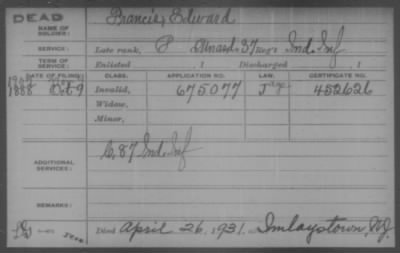 DEAD
NAME OF SOLDIER: Francis, Edward
SERVICE: Late rank, P Unasd. 37 Regt Ind. Inf
TERM OF SERVICE: Enlisted , 1 Discharged , 1
DATE OF FILING. CLASS. APPLICATION NO. LAW. CERTIFICATE NO.
1888 Oct 9 Invalid, 675077 452626
Widow,
Minor,
ADDITIONAL SERVICES: C. 87 Ind. Inf
REMARKS:
Died April 26, 1931. Imlaystown, NJ.